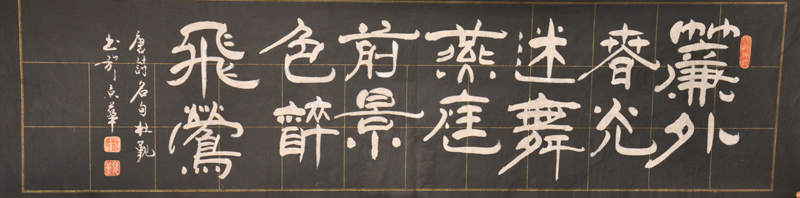 簾外
春光
迷舞
燕庭
前景
色醉
飛鶯
唐詩名句杜甄